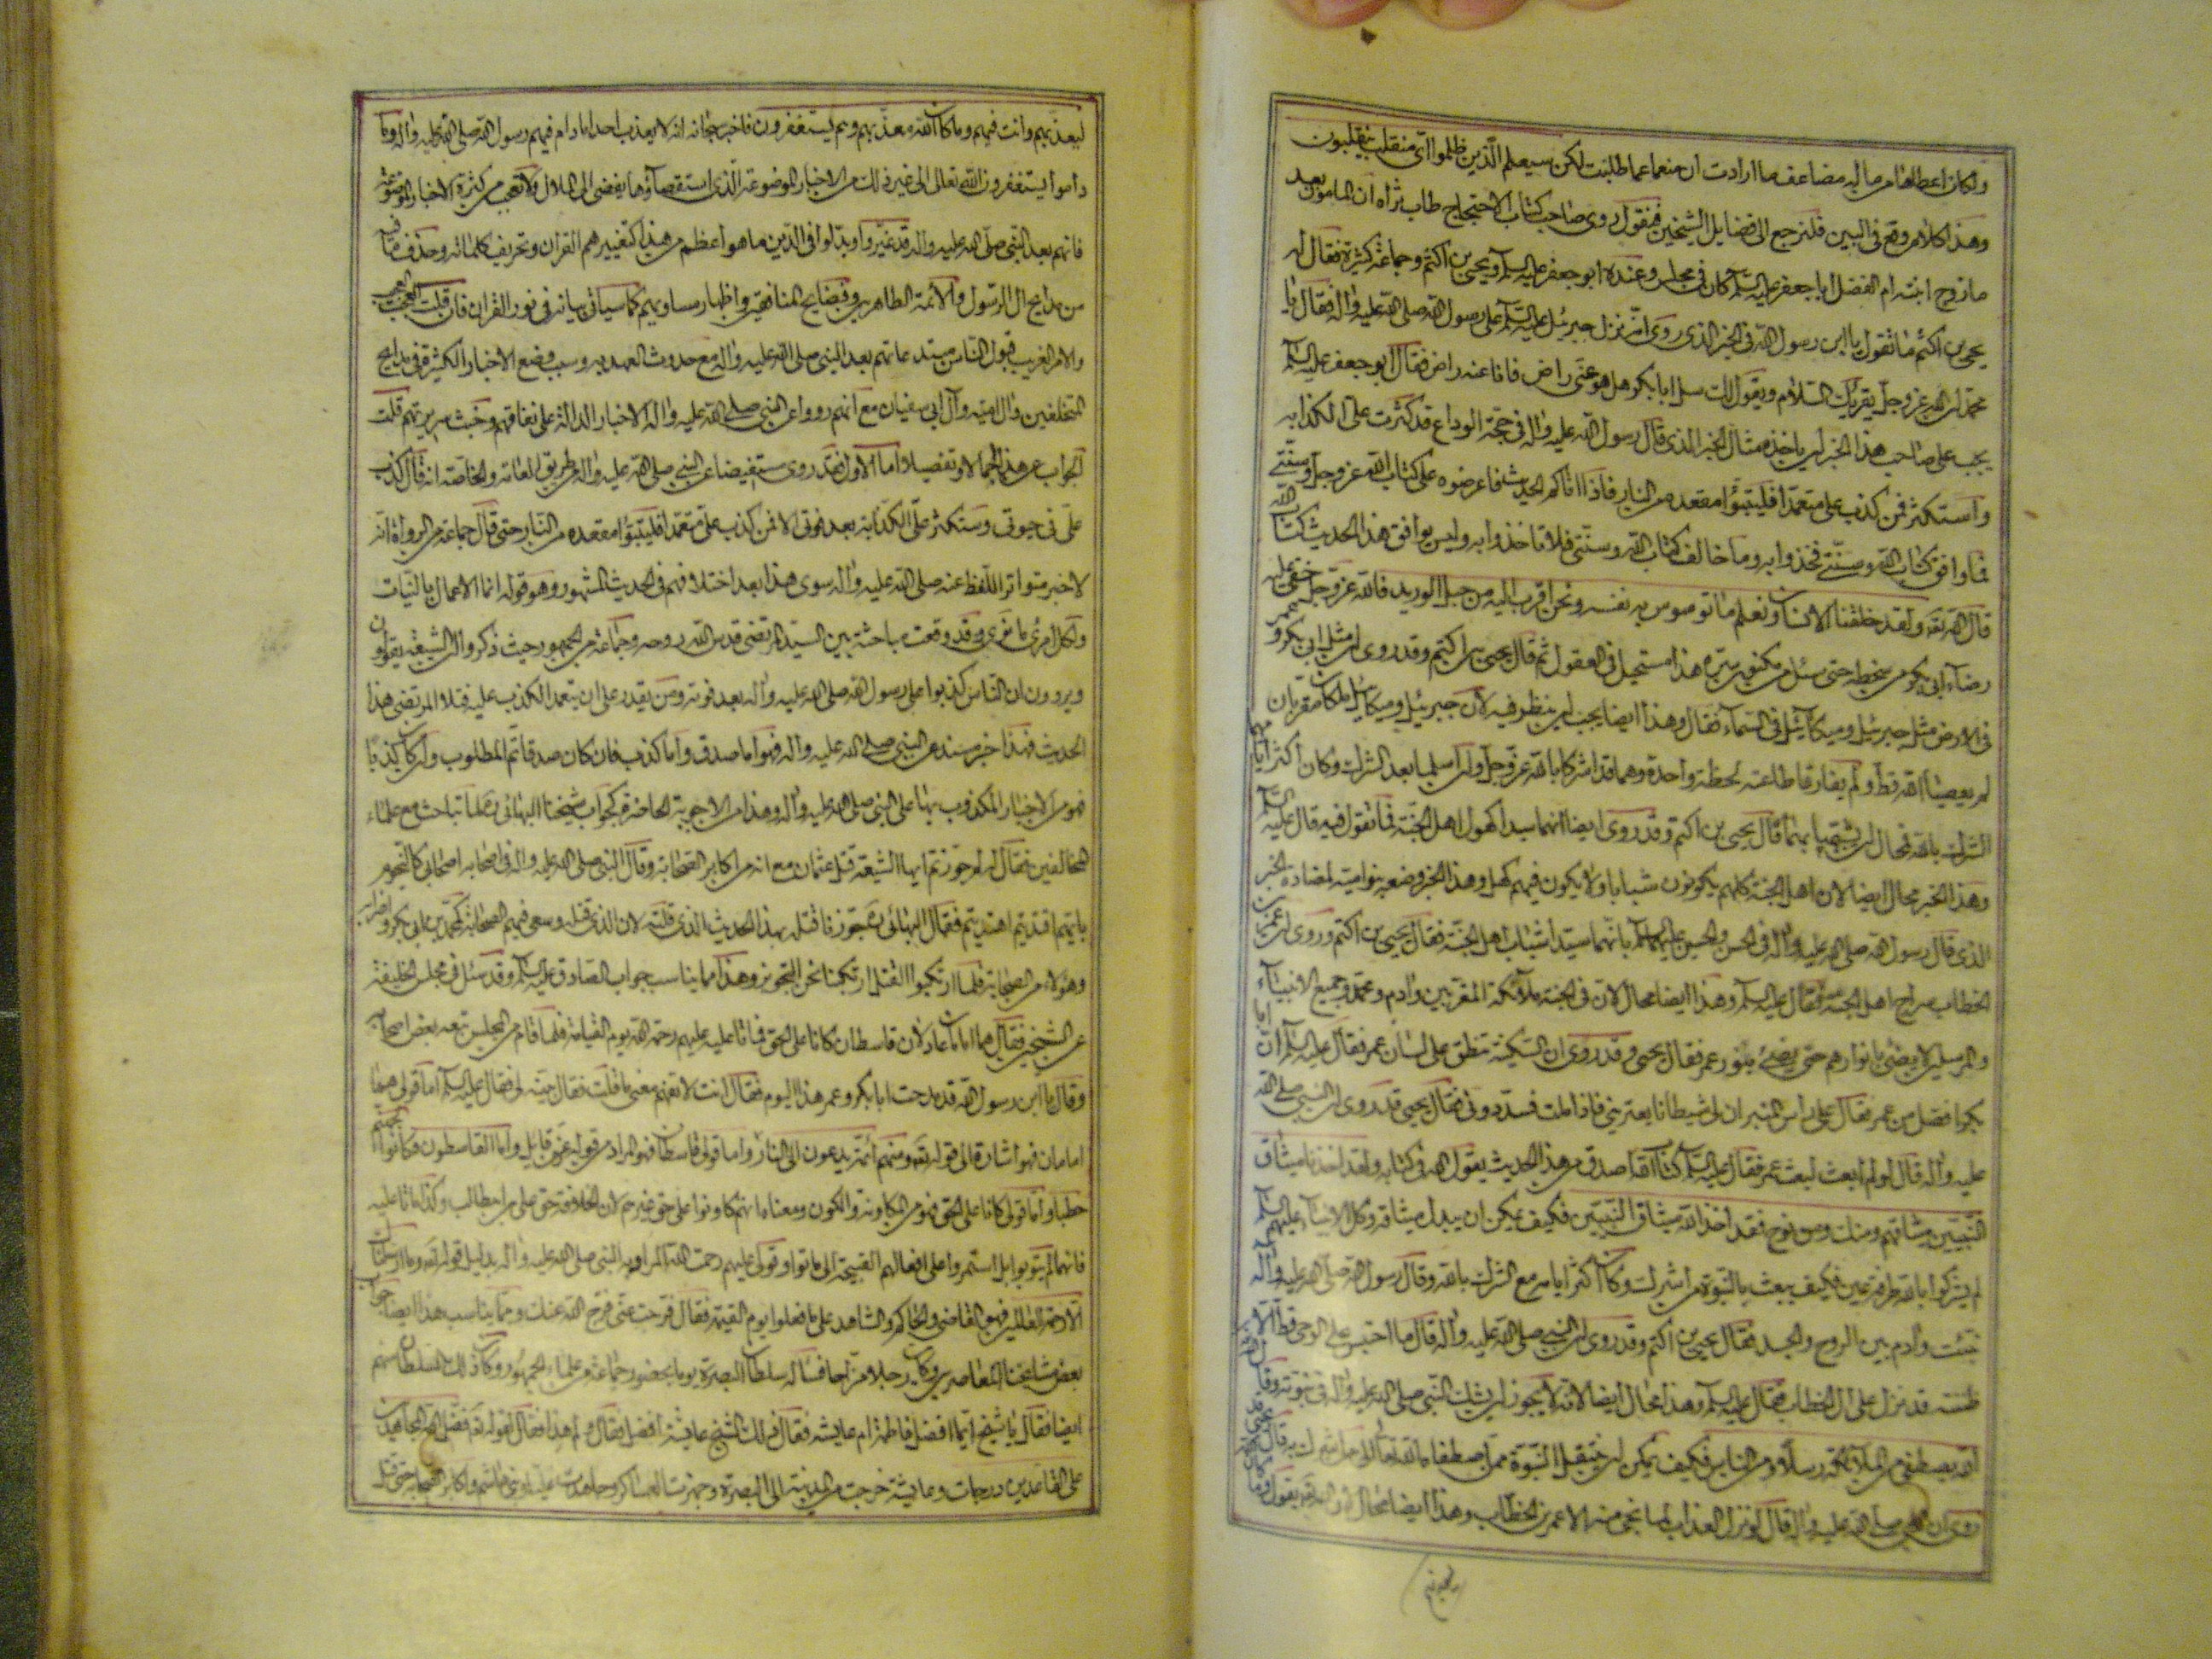 ولو كان اعطاها من ماله مضاعف ما ارادت ان منعها عما طلبت لكن سيعلم الذين ظلموا اى منقلب ينقلبون
وهذا كلام وقع فى البين فلنرجع الى فضايل الشيخين فنقول روى صاحب كتاب الاحتجاج طاب ثراه ان المامون بعد
ما زوج ابنته ام الفضل ابا جعفر عليه السلم كان فى مجلس وعنده ابو جعفر عليه السلم ويحيى بن اكثم وجماعة كثيرة فقال له
يحيى بن اكثم ما تقول يا ابن رسول الله فى الخبر الذى روى انه نزل جبرئيل عليه السلم على رسول الله صلى الله عليه واله فقال يا
محمد ان الله عز وجل يقرئك السلام ويقول لك سل ابا بكر هل هو عنى راض فانا عنه راض فقال ابو جعفر عليه السلم
يجب على صاحب هذا الخبر ان ياخذ مثال الخبر الذى قال رسول الله عليه واله فى حجة الوداع قد كثرت على الكذابه
وستكثر فمن كذب على متعمدا فليتبؤا مقعده من النار فاذا اتاكم الحديث فاعرضوه على كتاب الله عز وجل وسنتى
فما وافق كتاب الله وسنتى فخذوا به وما خالف كتاب الله وسنتى فلا تاخذوا به وليس يوافق هذا الحديث كتاب الله
قال الله تعه ولقد خلقنا الانسان ونعلم ما توسوس به نفسه ونحن اقرب اليه من حبل الوريد فالله عز وجل خفى عليه
رضاء ابى بكر من سخطه حتى سئل من مكنون سره هذا مستحيل فى العقول ثم قال يحيى بن اكثم وقد روى ان مثل ابى بكر وعمر
فى الارض مثل جبرئيل وميكائيل فى السماء فقال وهذا ايضا يجب ان ينظر فيه لان جبرئيل وميكائيل ملكان مقربان
لم يعصيا الله قط ولم يفارقا طاعته لحظة واحدة وهما قد اشركا بالله عز وجل وان اسلما بعد الشرك وكان اكثر ايامهما
الشرك بالله فمحال ان يشبههما بهما قال يحيى بن اكثم وقد روى ايضا انهما سيدا كهول اهل الجنة فما تقول فيه قال عليه السلم
وهذا الخبر محال ايضا لان اهل الجنة كلهم يكونون شبابا ولا يكون فيهم كهل وهذا الخبر وضعه بنو امية لمضادة الخبر
الذى قال رسول الله صلى الله عليه واله فى الحسن والحسين عليهما السلم بانهما سيدا شباب اهل الجنة فقال يحيى بن اكثم وروى ان عمر بن
الخطاب سراج اهل الجنة فقال عليه السلم وهذا ايضا محال لان فى الجنة ملائكة المقربين وادم ومحمد وجميع الانبياء
والمرسلين لا يضئ بانوارهم حتى يضئ بنور عمر فقال يحيى وقد روى ان السكينة تنطق على لسان عمر فقال عليه السلم ان ابا
بكر افضل من عمر فقال على راس المنبر ان لى شيطانا يعترينى فاذا ملت فسددونى فقال يحيى قد روى ان النبى صلى الله
عليه واله قال لو لم ابعث لبعث عمر فقال عليه السلم كتاب الله اصدق من هذا الحديث يقول الله فى كتابه ولقد اخذنا ميثاق
النبيين ميثاقهم ومنك ومن نوح فقد اخذ الله ميثاق النبيين فكيف يمكن ان يبدل ميثاقه وكل الانبياء عليهم السلم
لم يشركوا بالله طرفة عين فكيف يبعث بالنبوة من اشرك وكان اكثر ايامه مع الشرك بالله وقال رسول الله صلى الله عليه واله
نبئت وادم بين الروح والجسد فقال يحيى بن اكثم وقد روى ان النبى صلى الله عليه واله قال ما احتبس على الوحى قط الا
ظننته قد نزل على ال الخطاب فقال عليه السلم وهذا محال ايضا لانه لا يجوز ان يشك النبى صلى الله عليه واله فى نبوته وقال الله
الله يصطفى من الملائكة رسلا ومن الناس فكيف يمكن ان تنتقل النبوة ممن اصطفاه الله تعالى الى من اشرك به قال يحيى قد
روى ان النبى صلى الله عليه واله قال لو نزل العذاب لما نجى منه الا عمر بن الخطاب وهذا ايضا محال ان الله تعه يقول وما كان الله
ليعذبهم
ليعذبهم وانت فيهم وما كان الله معذبهم وهم يستغفرون فاخبر سبحانه انه لا يعذب احدا ما دام فيهم رسول الله صلى الله عليه واله وما
داموا يستغفرون الله تعالى الى غير ذلك من الاخبار الموضوعة الذى استقصاؤها يفضى الى الملال ولا تعجب من كثرة الاخبار الموضوعة
فانهم بعد النبى صلى الله عليه واله قد غيروا وبدلوا فى الدين ما هو اعظم من هذا كتغييرهم القران وتحريف كلماته وحذف ما فيه
من مدايح ال الرسول والائمة الطاهرين وفضايح المنافقين واظهار مساويهم كما سياتى بيانه فى نور القران فان قلت العجب العجيب
والامر الغريب قبول الناس مبتدعاتهم بعد النبى صلى الله عليه واله مع حدوث العهد به وسبب وضع الاخبار الكثيرة فى مدايح
المتخلفين وال امية وال ابى سفيان مع انهم رووا عن النبى صلى الله عليه واله الاخبار الدالة على نفاقهم وخبث سريرتهم قلت
الجواب عن هذا اجمالا وتفصيلا اما الاول فقد روى مستفيضا عن النبى صلى الله عليه واله من طريق العامة والخاصة انه قال كذب
على فى حيوتى وستكثر على الكذابة بعد موتى الا فمن كذب على متعمدا فليتبؤا مقعده من النار حتى قال جماعة من الرواة انه
لا خبر متواتر اللفظ عنه صلى الله عليه واله سوى هذا بعد اختلافهم فى الحديث المشهور وهو قوله انما الاعمال بالنيات
ولكل امرئ ما نوى وقد وقعت مباحثة بين السيد المرتضى قدس الله روحه وجماعة من الجمهور حيث ذكروا ان الشيعة يقولون
ويروون ان الناس كذبوا على رسول الله صلى الله عليه واله بعد فوته ومن يقدر على ان يتعمد الكذب عليه فتلا المرتضى هذا
الحديث فهذا خبر مسند عن النبى صلى الله عليه واله فهو اما صدق واما كذب فان كان صدقا تم المطلوب وان كان كذبا
فهو من الاخبار المكذوب بها على النبى صلى الله عليه واله وهذا من الاجوبة الحاضرة كجواب شيخنا البهائى ره لما تباحث مع علماء
المخالفين فقال له لم جوزتم ايها الشيعة قتل عثمان مع انه من اكابر الصحابة وقال النبى صلى الله عليه واله فى اصحابه اصحابى كالنجوم
بايهم اقتديتم اهتديتم فقال البهائى ره جوزنا قتله بهذا الحديث الذى قلته لان الذى قتله وسعى فيهم الصحابة كمحمد بن ابى بكر واضرابه
وهؤلاء من الصحابة فلما ارتكبوا القتل ارتكبنا نحن التجويز وهذا مما يناسب جواب الصادق عليه السلم وقد سئل فى مجلس الخليفة
عن الشيخين فقال هما امامان عادلان قاسطان كانا على الحق فماتا عليه عليهم رحمة الله يوم القيامة فلما قام من المجلس تبعه بعض اصحابه
وقال يا ابن رسول الله قد مدحت ابا بكر وعمر هذا اليوم فقال انت لا تفهم معنى ما قلت فقال بينه لى فقال عليه السلم اما قولى هما
امامان فهو اشارة الى قوله تعه ومنهم ائمة يدعون الى النار واما قولى قاسطان فهو المراد من قوله عز من قايل واما القاسطون فكانوا لجهنم
حطبا واما قولى كانا على الحق فهو من المكاونة والكون ومعناه انهم كاونوا على حق غيرهم لان الخلافة حق على بن ابيطالب وكذا ماتا عليه
فانهما لم يتوبوا بل استمروا على افعالهم القبيحة الى ان ماتوا وقولى عليهم رحمت الله المراد به النبى صلى الله عليه واله بدليل قوله تعه وما ارسلناك
الا رحمة للعالمين فهو القاضى والحاكم والشاهد على ما فعلوا يوم القيمة فقال فرجت عنى فرج الله عنك ومما يناسب هذا ايضا جواب
بعض مشايخنا المعاصرين وكان رجلا مزاحا فساله سلطان البصرة يوما بحضور جماعة من علماء الجمهور وكان ذلك السلطان منهم
ايضا فقال يا شيخ ايما افضل فاطمة ام عايشه فقال ذلك الشيخ عايشة افضل فقال ولم هذا فقال لقوله تعه فضل الله المجاهدين
على القاعدين درجات وعايشة خرجت من المدينة الى البصرة وجهزت العساكر وجاهدت عليا وبنى هاشم واكابر الصحابة حتى قتل